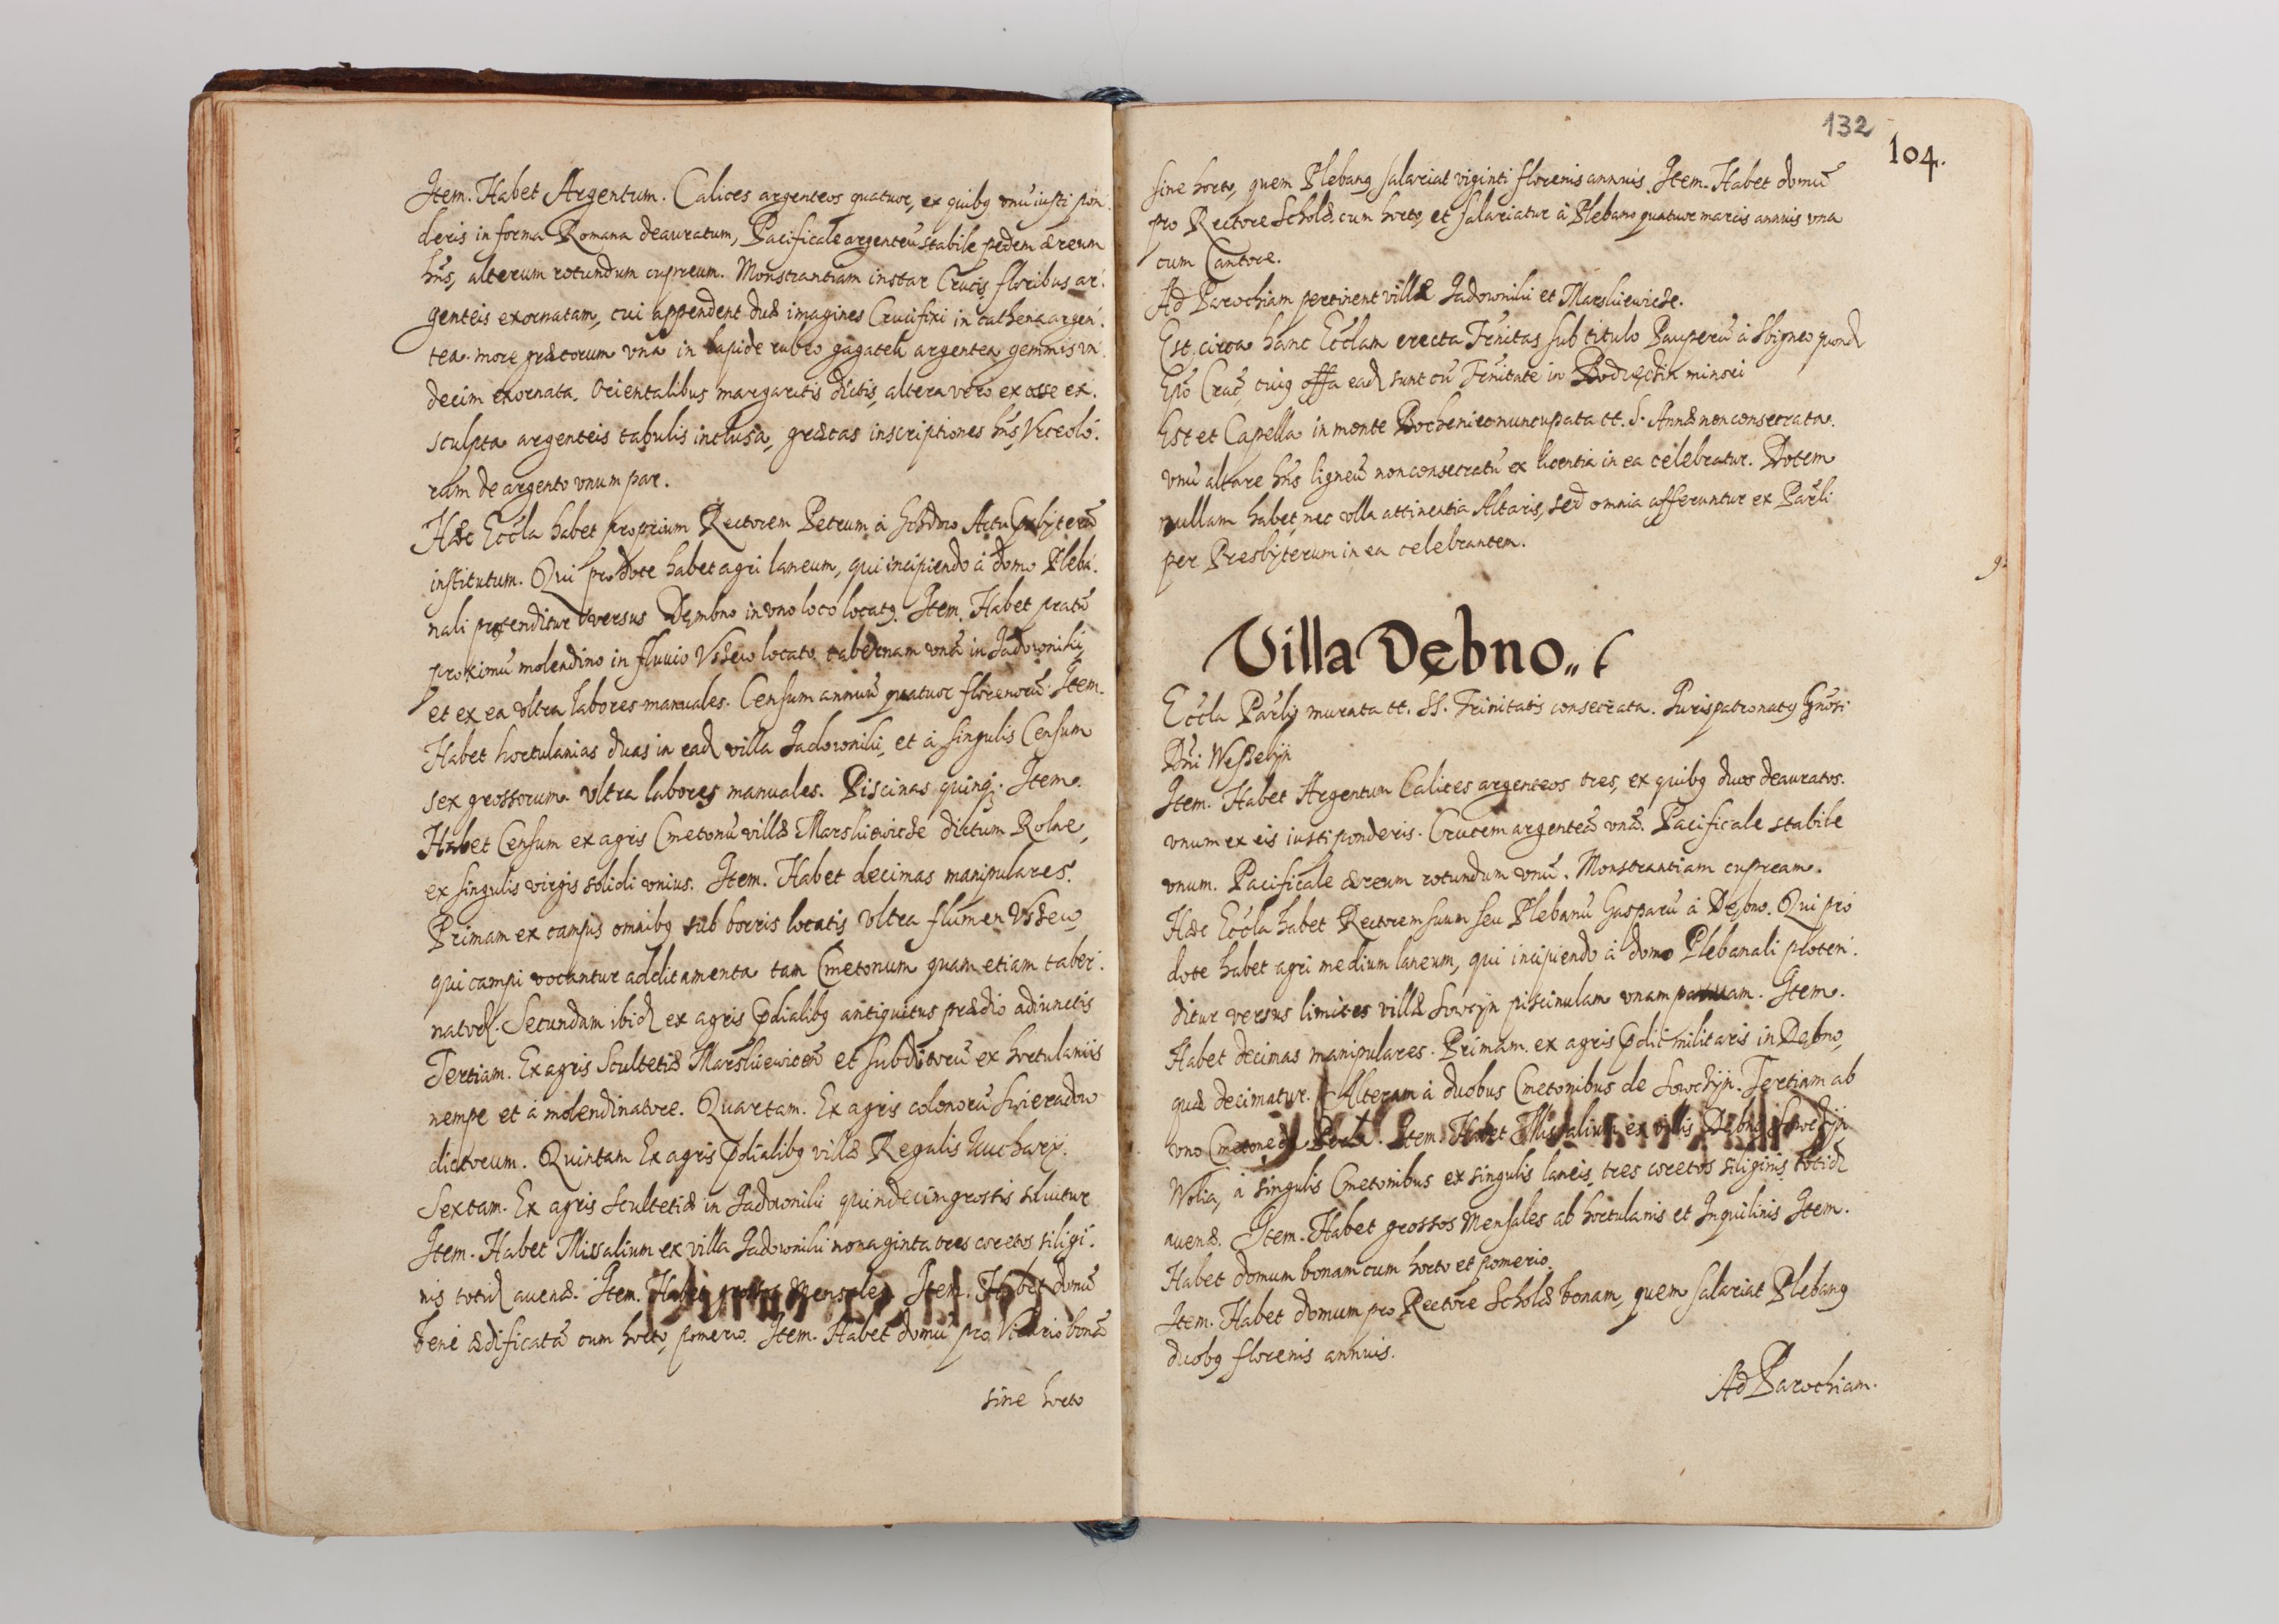 Item. Habet Argentum. Calices argenteos quatuor, ex quibꝯ unũ iusti pon-
deris in forma Romana deauratum, Pacificale argenteũ stabile pedem æreum
hñs, alterum rotundum cupreum. Monstrantiam instar Crucis floribus ar-
genteis exornatam, cui appendent duæ imagines Crucifixi in cathena argen-
tea more græcorum una in lapide rubeo gagatea argentea gemmis un-
decim exornata, Orientalibus margaritis dictis, altera vero ex osse ex-
sculpta argenteis tabulis inclusa, græcas inscriptiones hñs, Vrceolo-
rum de argento unum par.
Hæc Eccla habet proprium Rectorem Petrum à Actu Pƀyterũ
institutum. Qui pro dote habet agri laneum, qui incipiendo à domo Pleba-
nali protenditur versus Dęmbno in uno loco locatꝯ. Item. Habet pratũ
proximũ molendino in fluvio Vssew locato. tabernam unã in Jadowniki,
et ex ea ultra labores manuales. Censum annuũ quatuor florenorũ. Item.
Habet hortulanias duas in ead villa Jadowniki, et à singulis Censum
sex grossorum ultra labores manuales. Piscinas quinqꝫ. Item.
Habet Censum ex agris Cmetonũ villæ Marskiewicze dictum Rolne,
ex singulis virgis solidi unius. Item. Habet decimas manipulares.
Primam ex campis omnibꝯ sub borris locatis ultra flumen Vssew,
qui campi vocantur additamenta tam Cmetonum quam etiam taber-
nator. Secundam ibid ex agris ꝓdialibꝯ antiquitus prædio adiunctis
Tertiam. Ex agris Scultetiæ Marskiewicen et subditorũ ex hortulaniis
nempe et à molendinatore. Quartam. Ex agris colonorũ Swieradow
dictorum. Quintam Ex agris ꝓdialibꝯ villæ Regalis
Sextam. Ex agris Scultetiæ in Jadowniki quindecim grossis solvitur
Item. Habet Missalium ex villa Jadowniki nonaginta tres coretos siligi-
nis totid avenæ. Item. Habet grossos Mensales. Item. Habet domũ
bene ædificatã cum horto, pomerio. Item. Habet domũ pro Vicario bonã
sine horto
132
104.
sine horto, quem Plebanꝯ salariat viginti florenis annuis. Item. Habet domũ
pro Rectore Scholæ cum horto, et salariatur à Plebano quatuor marcis annuis una
cum Cantore.
Ad Parochiam pertinent villæ Jadowniki et Marskiewicze.
Est circa hanc Ecclam erecta sub titulo Pauperũ à Sbigneo quond
Epõ Crac̃, cuiꝯ offa ead sunt cũ in minori
Est et Capella in monte nuncupata tt. S. Annæ non consecrata.
unũ altare hñs ligneũ non consecratũ ex licentia in ea celebratur. Dotem
nullam habet, nec ulla attinentia Altaris, sed omnia afferuntur ex Parli
per Presbyterum in ea celebrantem.
Villa Dębno
Eccla Parlis murata tt. SS. Trinitatis consecrata. Jurispatronatꝯ Gñosi
Dñi Wesselijn
Item. Habet Argentum Calices argenteos tres, ex quibꝯ duos deauratos.
unum ex eis iusti ponderis. Crucem argenteã unã. Pacificale stabile
unum. Pacificale æreum rotundum unũ. Monstrantiam cupream.
Hæc Eccla habet Rectorem suum seu Plebanũ Gasparũ à Dębno. Qui pro
dote habet agri medium laneum, qui incipiendo à domo Plebanali proten-
ditur versus limites villæ piscinulam unam parvam. Item.
Habet decimas manipulares. Primam ex agris ꝓdii militaris in Dębno,
quæ decimatur. Alteram à duobus Cmetonibus de. Tertiam ab
uno Cmetone. Item. Habet Missalium ex villis Dębno,
Wolia, à singulis Cmetonibus ex singulis laneis, tres coretos siliginis, totid
avenæ. Item. Habet grossos Mensales ab hortulanis et Inquilinis Item.
Habet domum bonam cum horto et pomerio.
Item. Habet domum pro Rectore Scholæ bonam, quem salariat Plebanꝯ
duobꝯ florenis annuis.
Ad Parochiam.